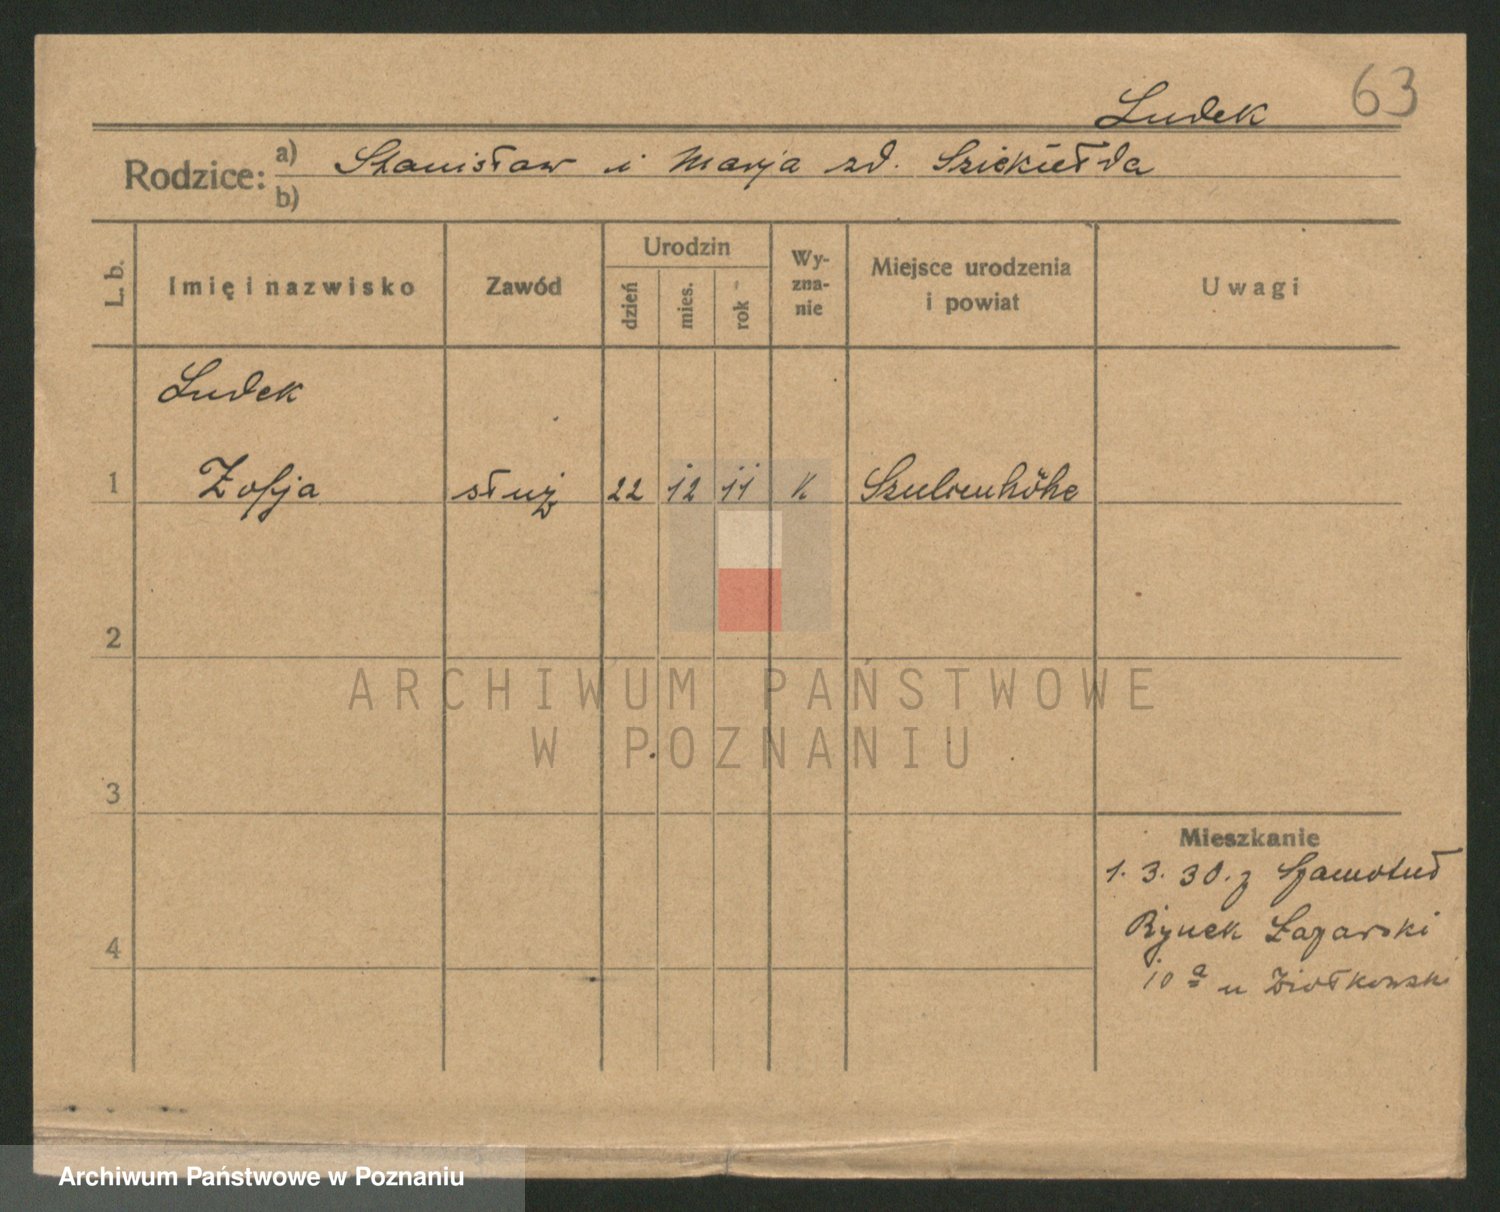 63
Ludek
Rodzice: a) Stanisław i Marja zd. Sziekiełda
b)
L. b. Imię i nazwisko Zawód Urodzin dzień mies. rok Wy-zna-nie Miejsce urodzenia i powiat Uwagi
Ludek
1 Zofja służ 22 12 11 K
2
3
4
Mieszkanie
1. 3. 30. z Szamotuł
Rynek Łazarski
10 a u Ziołkowski
ARCHIWUM PAŃSTWOWE
W POZNANIU
Archiwum Państwowe w Poznaniu